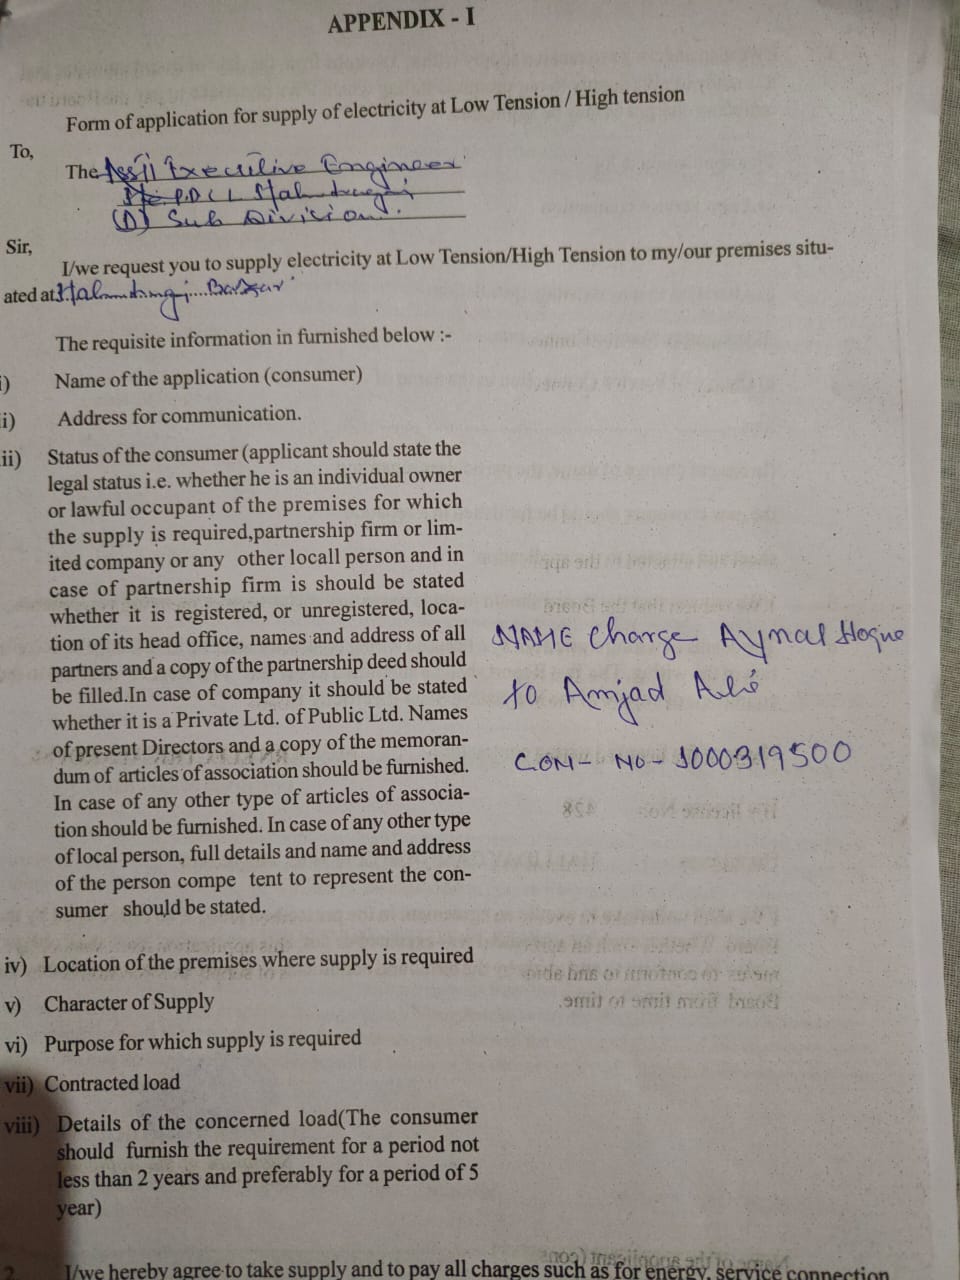 APPENDIX - I
Form of application for supply of electricity at Low Tension / High tension
To,
The Asstt Executive Engineer
Sub Division.
Sir,
I/we request you to supply electricity at Low Tension/High Tension to my/our premises situ-
ated at
The requisite information in furnished below :-
i) Name of the application (consumer)
i) Address for communication.
ii) Status of the consumer (applicant should state the
legal status i.e. whether he is an individual owner
or lawful occupant of the premises for which
the supply is required,partnership firm or lim-
ited company or any other locall person and in
case of partnership firm is should be stated
whether it is registered, or unregistered, loca-
tion of its head office, names and address of all
partners and a copy of the partnership deed should
be filled.In case of company it should be stated
whether it is a Private Ltd. of Public Ltd. Names
of present Directors and a copy of the memoran-
dum of articles of association should be furnished.
In case of any other type of articles of associa-
tion should be furnished. In case of any other type
of local person, full details and name and address
of the person compe tent to represent the con-
sumer should be stated.
NAME Charge Aynal Hoque
to Amjad Ali
CON- NO - 1000319500
iv) Location of the premises where supply is required
v) Character of Supply
vi) Purpose for which supply is required
vii) Contracted load
viii) Details of the concerned load(The consumer
should furnish the requirement for a period not
less than 2 years and preferably for a period of 5
year)
2. I/we hereby agree to take supply and to pay all charges such as for energy, service connection